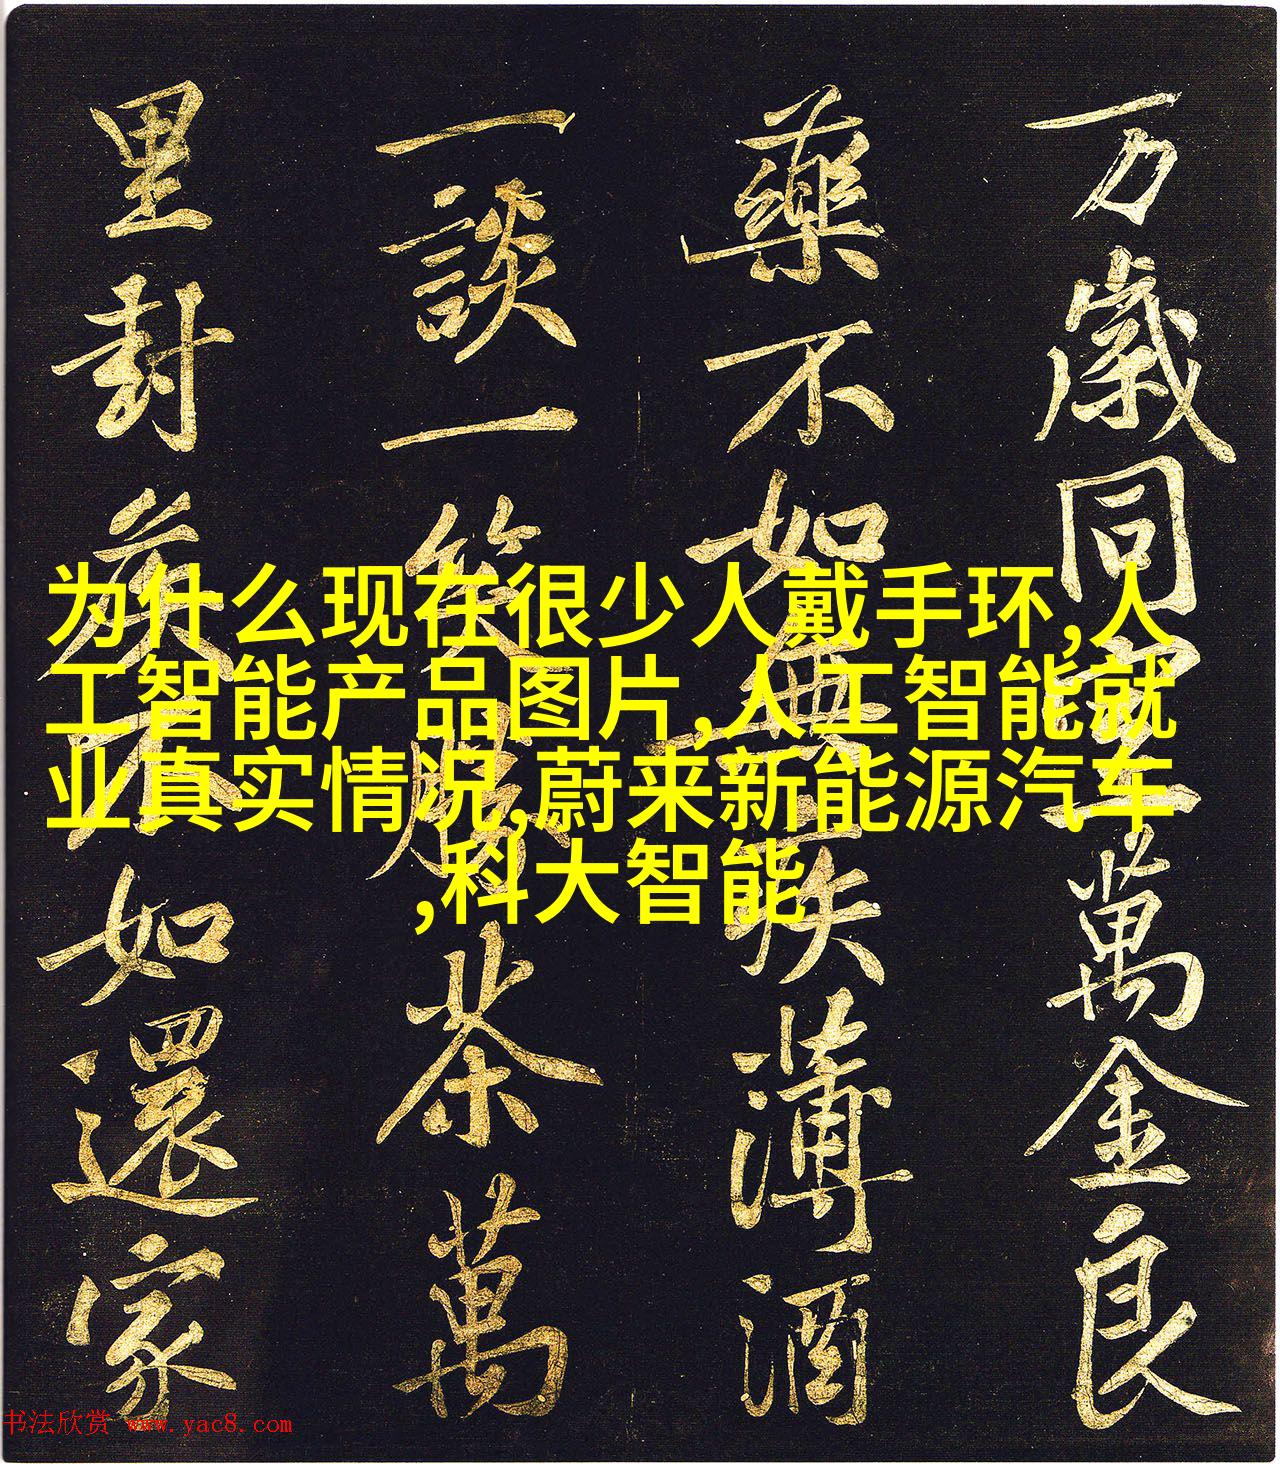 万歲同室萬金良
藥不如無疾薄酒
一談一笑勝茶萬
里封侯不如還家
为什么现在很少人戴手环,人
工智能产品图片,人工智能就
业真实情况,蔚来新能源汽车
,科大智能
书法欣赏 www.yac8.com